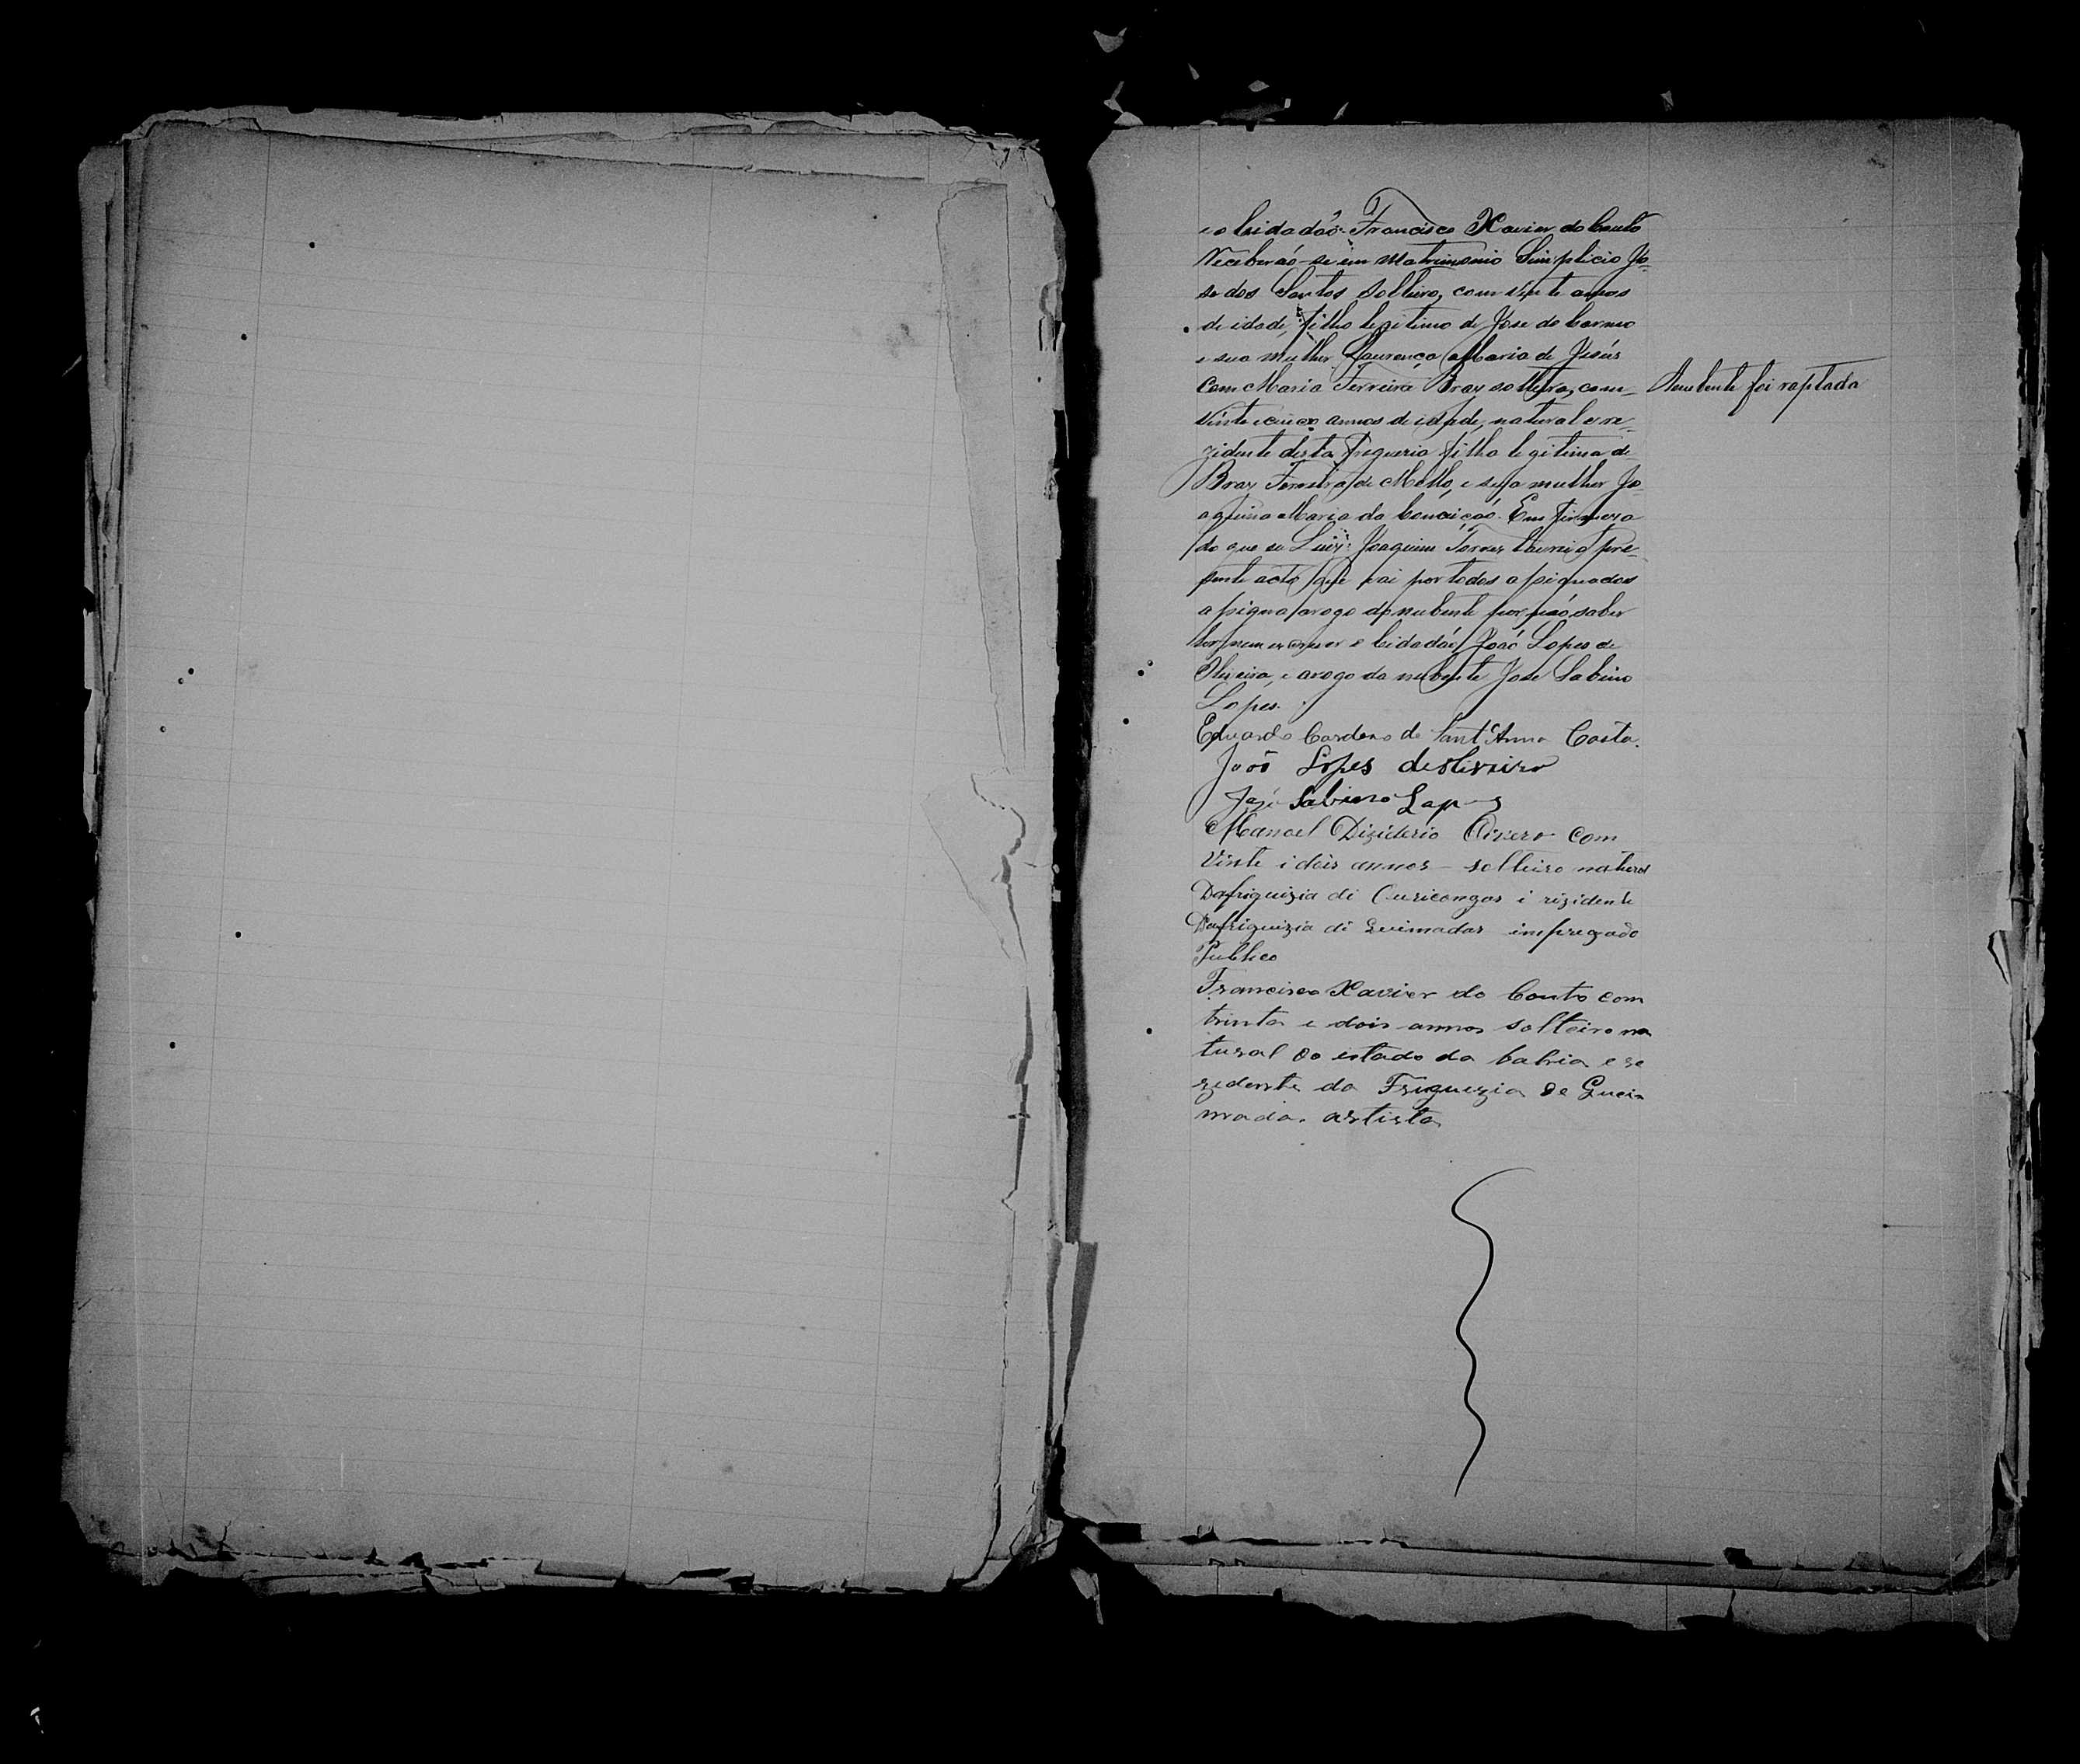 e o Cidadão Francisco Xavier do Couto
Receberáo-se em Matrimonio Simplicio Jo-
se dos Santos solteiro, com vinte annos
de idade, filho legitimo de Jose do Carmo
e sua mulher Lourença Maria de Jesús
Com Maria Ferreira Braz solteira, com- A nubente foi raptada
vinte e cinco annos de idade, natural e re-
zidente desta Freguezia filha legitima de
Braz Ferreira de Mello, e sua mulher Jo-
aquina Maria da Conceição. Em firmeza
do que eu Luiz Joaquim lavrei o pre-
sente acto que vai por todos assignados
assigna arogo do nubente por não saber
ler nem escrever o Cidadão João Lopes de
Oliveira, e arogo da nubente Jose Sabino
Lopes.
Eduardo Cardozo de Sant'Anna Costa.
João Lopes de Oliveira
José Sabino Lopes
Manoel Diziderio com
Vinte i dois annos - solteiro natural
Dafriguizia di i rizidente
Dafriguizia di Queimadas impregado
Publico
Francisco Xavier do Couto com
trinta e dois annos solteiro na
tural do estado da bahia e re
zidente da Friguezia de Quei
mada. artista